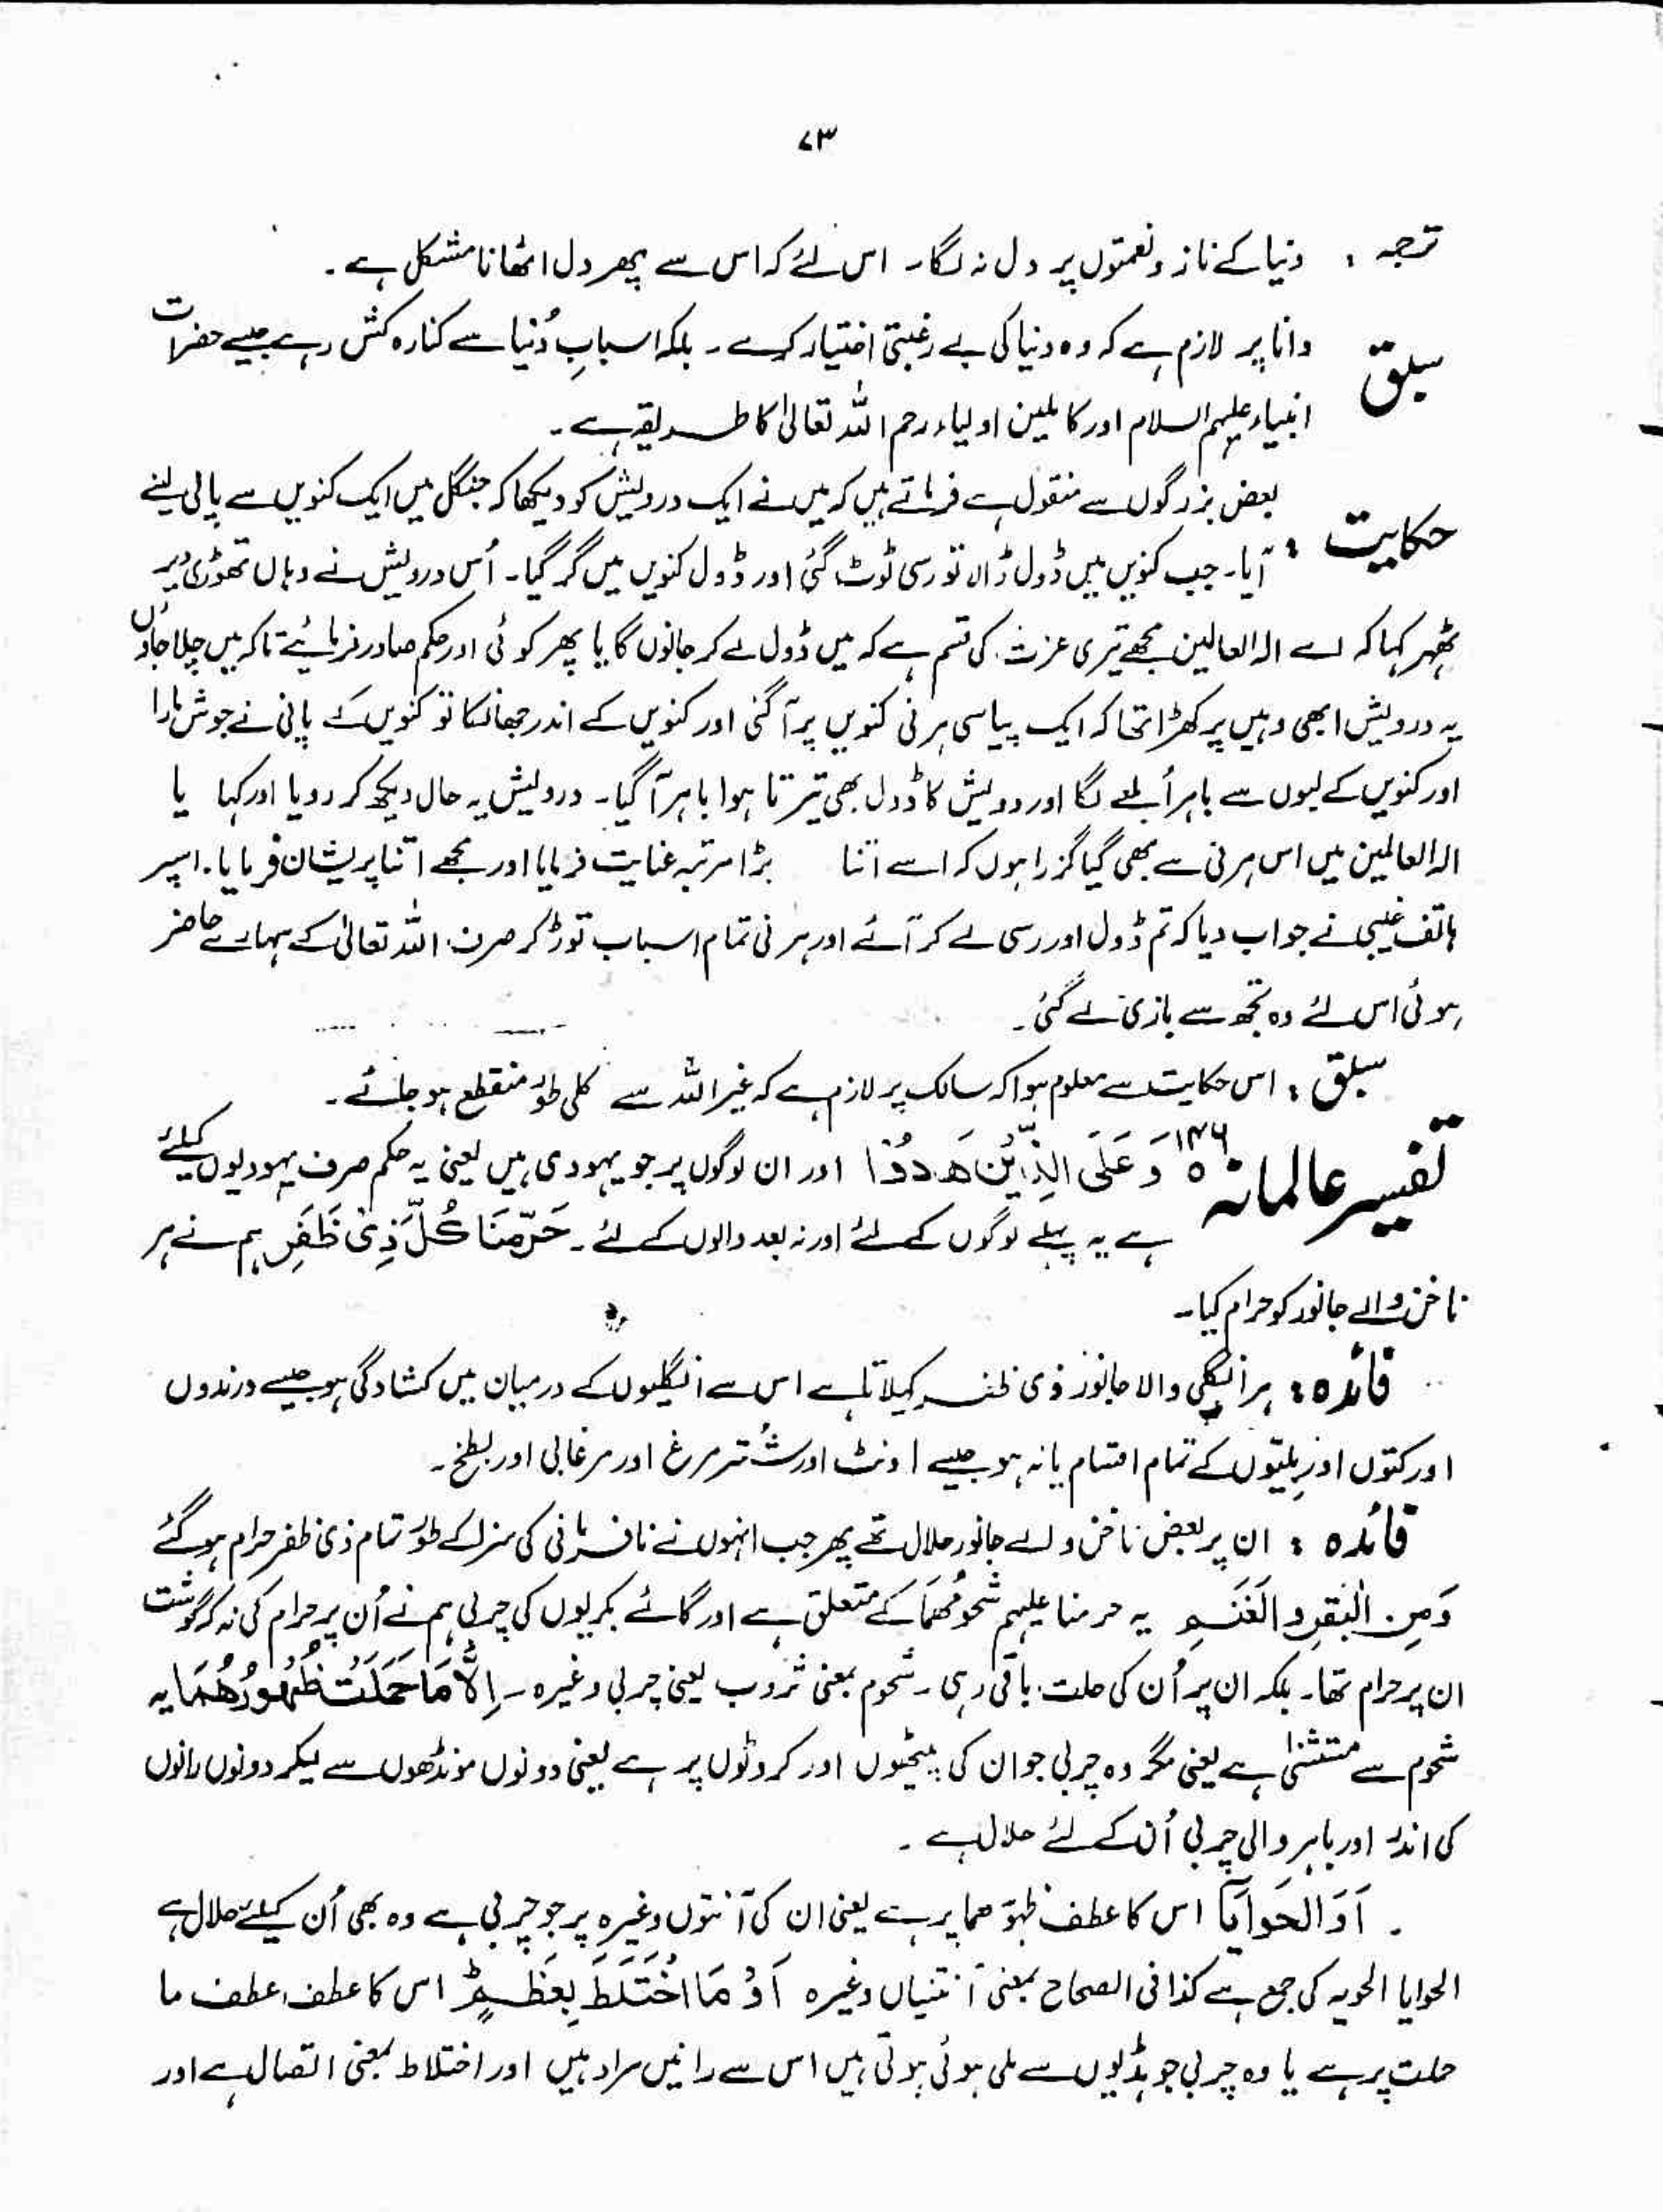 ۷۳
ترجمہ : دنیا کے ناز و نعمتوں پر دل نہ لگا۔ اس لئے کہ اس سے پھر دل اٹھانا مشکل ہے۔
سبق دانا پر لازم ہے کہ وہ دنیا کی بے رغبتی اختیار کرے۔ بلکہ اسبابِ دُنیا سے کنارہ کش رہے جیسے حضرات
انبیاء علیہم السلام اور کاملین اولیاء رحم اللہ تعالیٰ کا طریقہ ہے۔
حکایت : بعض بزرگوں سے منقول ہے فرماتے ہیں کہ میں نے ایک درویش کو دیکھا کہ جنگل میں ایک کنویں سے پانی لینے
آیا۔ جب کنویں میں ڈول ڈالا تو رسی ٹوٹ گئی اور ڈول کنویں میں گر گیا۔ اُس درویش نے وہاں تھوڑی دیر
ٹھہر کہا کہ اے الہ العالمین مجھے تیری عزت کی قسم ہے کہ میں ڈول لے کر جانوں گا یا پھر کوئی اور حکم صادر فرمائیے تاکہ میں چلا جاؤں
یہ درویش ابھی وہیں پر کھڑا تھا کہ ایک پیاسی ہرنی کنویں پر آ گئی اور کنویں کے اندر جھانکا تو کنویں کے پانی نے جوش مارا
اور کنویں کے لبوں سے باہر اُبلنے لگا اور درویش کا ڈول بھی تیرتا ہوا باہر آ گیا۔ درویش یہ حال دیکھ کر رویا اور کہا یا
الہ العالمین میں اس ہرنی سے بھی گیا گزرا ہوں کہ اسے اتنا بڑا مرتبہ عنایت فرمایا اور مجھے اتنا پریشان فرمایا۔ اسپر
ہاتف غیبی نے جواب دیا کہ تم ڈول اور رسی لے کر آئے اور ہرنی تمام اسباب توڑ کر صرف اللہ تعالیٰ کے سہارے حاضر
ہوئی اس لئے وہ تجھ سے بازی لے گئی۔
سبق : اس حکایت سے معلوم ہوا کہ سالک پر لازم ہے کہ غیر اللہ سے کلی طور منقطع ہو جائے۔
تفسیر عالمانہ ۱۴۶ ٥ وَعَلَى الَّذِيْنَ هَادُوْا اور ان لوگوں پر جو یہودی ہیں یعنی یہ حکم صرف یہودیوں کیلئے
ہے یہ پہلے لوگوں کے لئے اور نہ بعد والوں کے لئے۔ حَرَّمْنَا كُلَّ ذِىْ ظُفُرٍ ہم نے ہر
ناخن والے جانور کو حرام کیا۔
فائدہ : ہر انگلی والا جانور ذی ظفر کہلاتا ہے اس سے انگلیوں کے درمیان میں کشادگی ہو جیسے درندوں
اور کتوں اور بلیّوں کے تمام اقسام یا نہ ہو جیسے اونٹ اور شُتر مرغ اور مرغابی اور بطخ۔
فائدہ : ان پر بعض ناخن والے جانور حلال تھے پھر جب انہوں نے نافرمانی کی سزا کے طور تمام ذی ظفر حرام ہو گئے
وَمِنَ الْبَقَرِ وَالْغَنَمِ یہ حرمنا علیہم شحومُہُمَا کے متعلق ہے اور گائے بکریوں کی چربی ہم نے اُن پر حرام کی نہ کہ گوشت
ان پر حرام تھا۔ بلکہ ان پر اُن کی حلت باقی رہی۔ شحوم بمعنی ثروب یعنی چربی وغیرہ۔ اِلَّا مَا حَمَلَتْ ظُهُوْرُهُمَا یہ
شحوم سے مستثنیٰ ہے یعنی مگر وہ چربی جو ان کی پیٹھوں اور کروٹوں پر ہے یعنی دونوں مونڈھوں سے لیکر دونوں رانوں
کی اندر اور باہر والی چربی اُن کے لئے حلال ہے۔
اَوِ الْحَوَايَا اس کا عطف ظہورھما پر ہے یعنی ان کی آنتوں وغیرہ پر جو چربی ہے وہ بھی اُن کیلئے حلال ہے
الحوایا الحویہ کی جمع ہے کذافی الصحاح بمعنی آنتیاں وغیرہ اَوْ مَا اخْتَلَطَ بِعَظْمٍ اس کا عطف عطف ما
حملت پر ہے یا وہ چربی جو ہڈیوں سے ملی ہوئی ہوتی ہیں اس سے رانیں مراد ہیں اور اختلاط بمعنی اتصال ہے اور